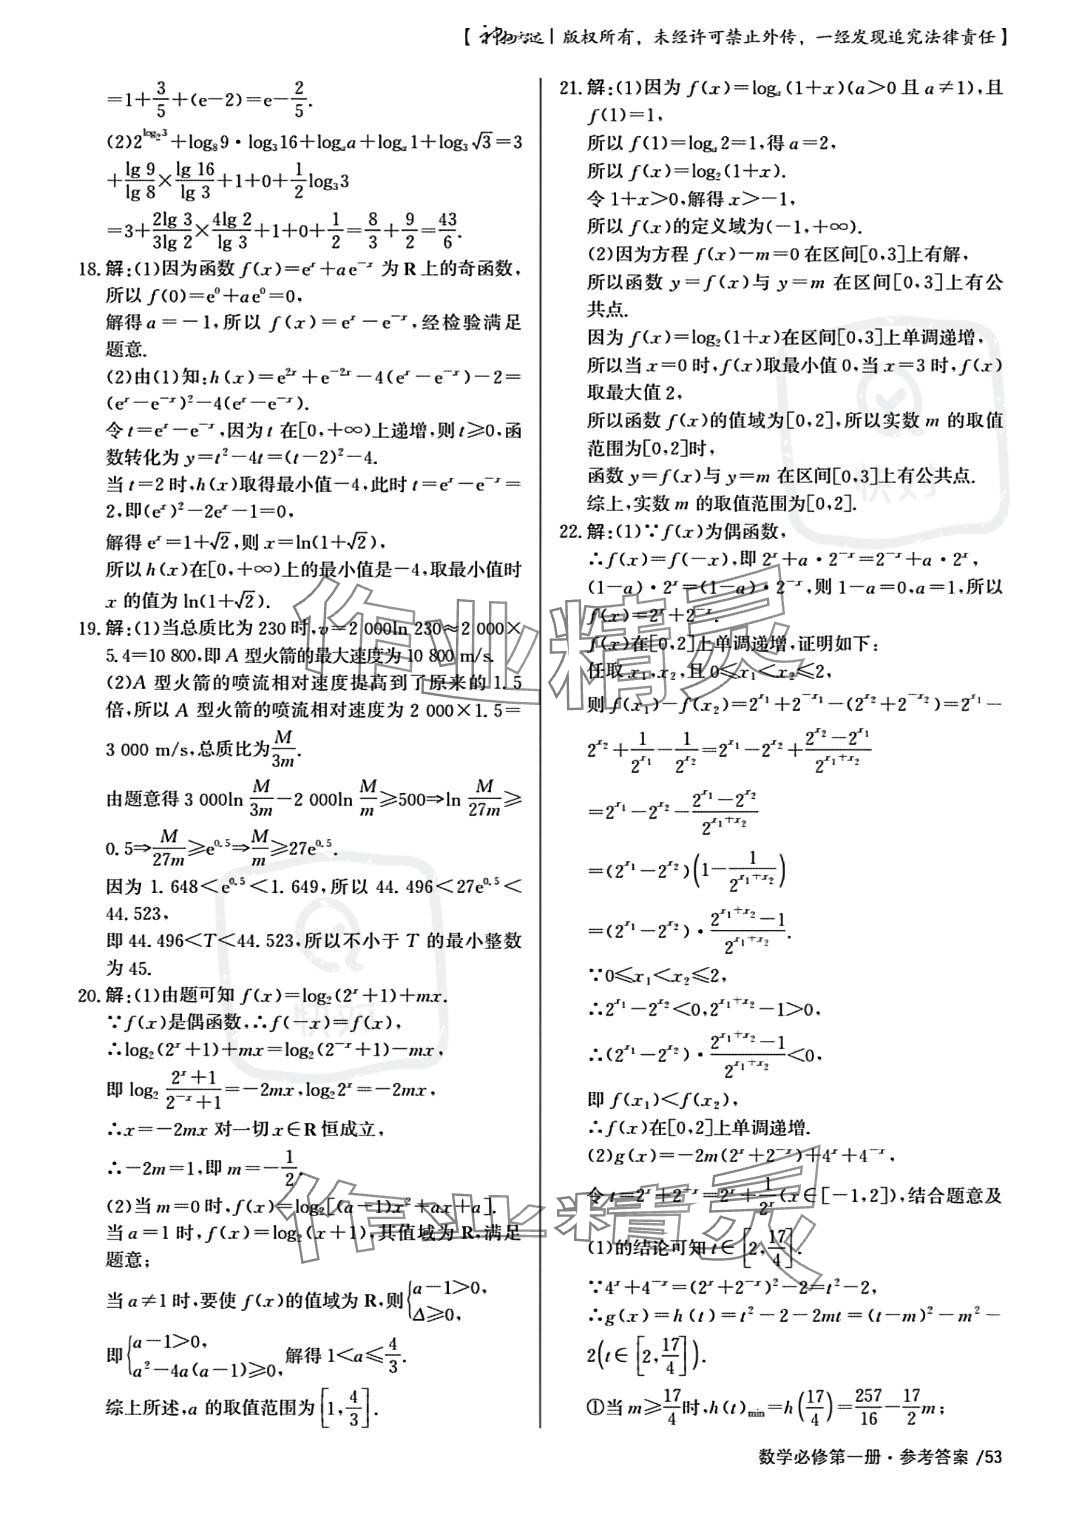 【神州文运|版权所有，未经许可禁止外传，一经发现追究法律责任】
=1+3/5+(e-2)=e-2/5.
(2)2^{log₂3}+log₈9·log₃16+logₐa+logₐ1+log₃√3=3
+lg 9/lg 8×lg 16/lg 3+1+0+1/2log₃3
=3+2lg 3/3lg 2×4lg 2/lg 3+1+0+1/2=8/3+9/2=43/6.
18.解:(1)因为函数 f(x)=eˣ+ae⁻ˣ 为 R 上的奇函数,
所以 f(0)=e⁰+ae⁰=0,
解得 a=-1,所以 f(x)=eˣ-e⁻ˣ,经检验满足
题意.
(2)由(1)知:h(x)=e²ˣ+e⁻²ˣ-4(eˣ-e⁻ˣ)-2=
(eˣ-e⁻ˣ)²-4(eˣ-e⁻ˣ).
令 t=eˣ-e⁻ˣ,因为 t 在[0,+∞)上递增,则 t≥0,函
数转化为 y=t²-4t=(t-2)²-4.
当 t=2 时,h(x)取得最小值-4,此时 t=eˣ-e⁻ˣ=
2,即(eˣ)²-2eˣ-1=0,
解得 eˣ=1+√2,则 x=ln(1+√2),
所以 h(x)在[0,+∞)上的最小值是-4,取最小值时
x 的值为 ln(1+√2).
19.解:(1)当总质比为 230 时,v=2 000ln 230≈2 000×
5.4=10 800,即 A 型火箭的最大速度为 10 800 m/s.
(2)A 型火箭的喷流相对速度提高到了原来的 1.5
倍,所以 A 型火箭的喷流相对速度为 2 000×1.5=
3 000 m/s,总质比为M/3m.
由题意得 3 000ln M/3m-2 000ln M/m≥500⇒ln M/27m≥
0.5⇒M/27m≥e^{0.5}⇒M/m≥27e^{0.5}.
因为 1.648<e^{0.5}<1.649,所以 44.496<27e^{0.5}<
44.523,
即 44.496<T<44.523,所以不小于 T 的最小整数
为 45.
20.解:(1)由题可知 f(x)=log₂(2ˣ+1)+mx.
∵f(x)是偶函数,∴f(-x)=f(x),
∴log₂(2ˣ+1)+mx=log₂(2⁻ˣ+1)-mx,
即 log₂ (2ˣ+1)/(2⁻ˣ+1)=-2mx,log₂2ˣ=-2mx,
∴x=-2mx 对一切 x∈R 恒成立,
∴-2m=1,即 m=-1/2.
(2)当 m=0 时,f(x)=log₂[(a-1)x²+ax+a].
当 a=1 时,f(x)=log₂(x+1),其值域为 R,满足
题意;
当 a≠1 时,要使 f(x)的值域为 R,则{a-1>0, Δ≥0,
即{a-1>0, a²-4a(a-1)≥0, 解得 1<a≤4/3.
综上所述,a 的取值范围为[1,4/3].
21.解:(1)因为 f(x)=logₐ(1+x)(a>0 且 a≠1),且
f(1)=1,
所以 f(1)=logₐ2=1,得 a=2,
所以 f(x)=log₂(1+x).
令 1+x>0,解得 x>-1,
所以 f(x)的定义域为(-1,+∞).
(2)因为方程 f(x)-m=0 在区间[0,3]上有解,
所以函数 y=f(x)与 y=m 在区间[0,3]上有公
共点.
因为 f(x)=log₂(1+x)在区间[0,3]上单调递增,
所以当 x=0 时,f(x)取最小值 0,当 x=3 时,f(x)
取最大值 2,
所以函数 f(x)的值域为[0,2],所以实数 m 的取值
范围为[0,2]时,
函数 y=f(x)与 y=m 在区间[0,3]上有公共点.
综上,实数 m 的取值范围为[0,2].
22.解:(1)∵f(x)为偶函数,
∴f(x)=f(-x),即 2ˣ+a·2⁻ˣ=2⁻ˣ+a·2ˣ,
(1-a)·2ˣ=(1-a)·2⁻ˣ,则 1-a=0,a=1,所以
f(x)=2ˣ+2⁻ˣ.
f(x)在[0,2]上单调递增,证明如下:
任取 x₁,x₂,且 0≤x₁<x₂≤2,
则 f(x₁)-f(x₂)=2^{x₁}+2^{-x₁}-(2^{x₂}+2^{-x₂})=2^{x₁}-
2^{x₂}+1/2^{x₁}-1/2^{x₂}=2^{x₁}-2^{x₂}+(2^{x₂}-2^{x₁})/2^{x₁+x₂}
=2^{x₁}-2^{x₂}-(2^{x₁}-2^{x₂})/2^{x₁+x₂}
=(2^{x₁}-2^{x₂})(1-1/2^{x₁+x₂})
=(2^{x₁}-2^{x₂})·(2^{x₁+x₂}-1)/2^{x₁+x₂}.
∵0≤x₁<x₂≤2,
∴2^{x₁}-2^{x₂}<0,2^{x₁+x₂}-1>0,
∴(2^{x₁}-2^{x₂})·(2^{x₁+x₂}-1)/2^{x₁+x₂}<0,
即 f(x₁)<f(x₂),
∴f(x)在[0,2]上单调递增.
(2)g(x)=-2m(2ˣ+2⁻ˣ)+4ˣ+4⁻ˣ,
令 t=2ˣ+2⁻ˣ=2ˣ+1/2ˣ(x∈[-1,2]),结合题意及
(1)的结论可知 t∈[2,17/4].
∵4ˣ+4⁻ˣ=(2ˣ+2⁻ˣ)²-2=t²-2,
∴g(x)=h(t)=t²-2-2mt=(t-m)²-m²-
2(t∈[2,17/4]).
①当 m≥17/4时,h(t)min=h(17/4)=257/16-17/2m;
数学必修第一册·参考答案 /53
作业精灵
作业精灵
快对
快对